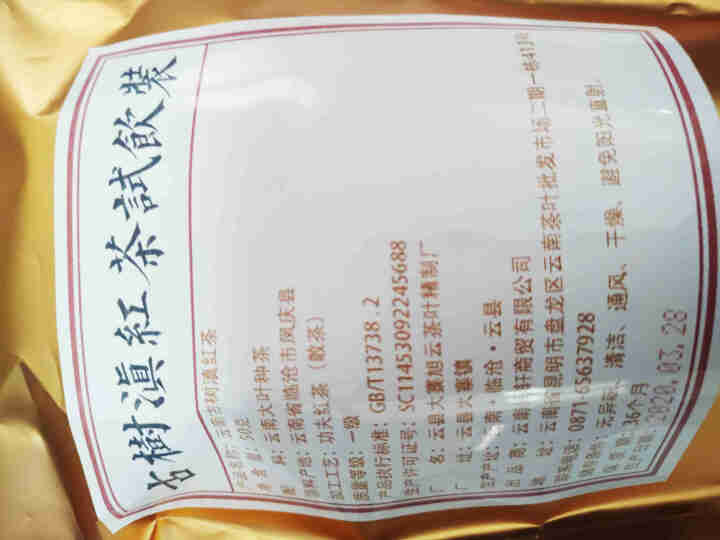 古樹滇紅茶試飲裝
产品名称：云南古树滇红茶
净含量：50克
配 料：云南大叶种茶
原料产地：云南省临沧市凤庆县
加工工艺：功夫红茶（散茶）
质量等级：一级
产品执行标准：GB/T13738.2
生产许可证号：SC11453092245688
厂 名：云县大寨旭云茶叶精制厂
厂 址：云县大寨镇
生产产地：云南·临沧·云县
出品商：云南 轩商贸有限公司
地 址：云南省昆明市盘龙区云南茶叶批发市场二期一栋413号
联系电话：0871-65637928
储存条件：无异味、清洁、通风、干燥、避免阳光直射。
保质期：36个月
生产日期：2020.03.28